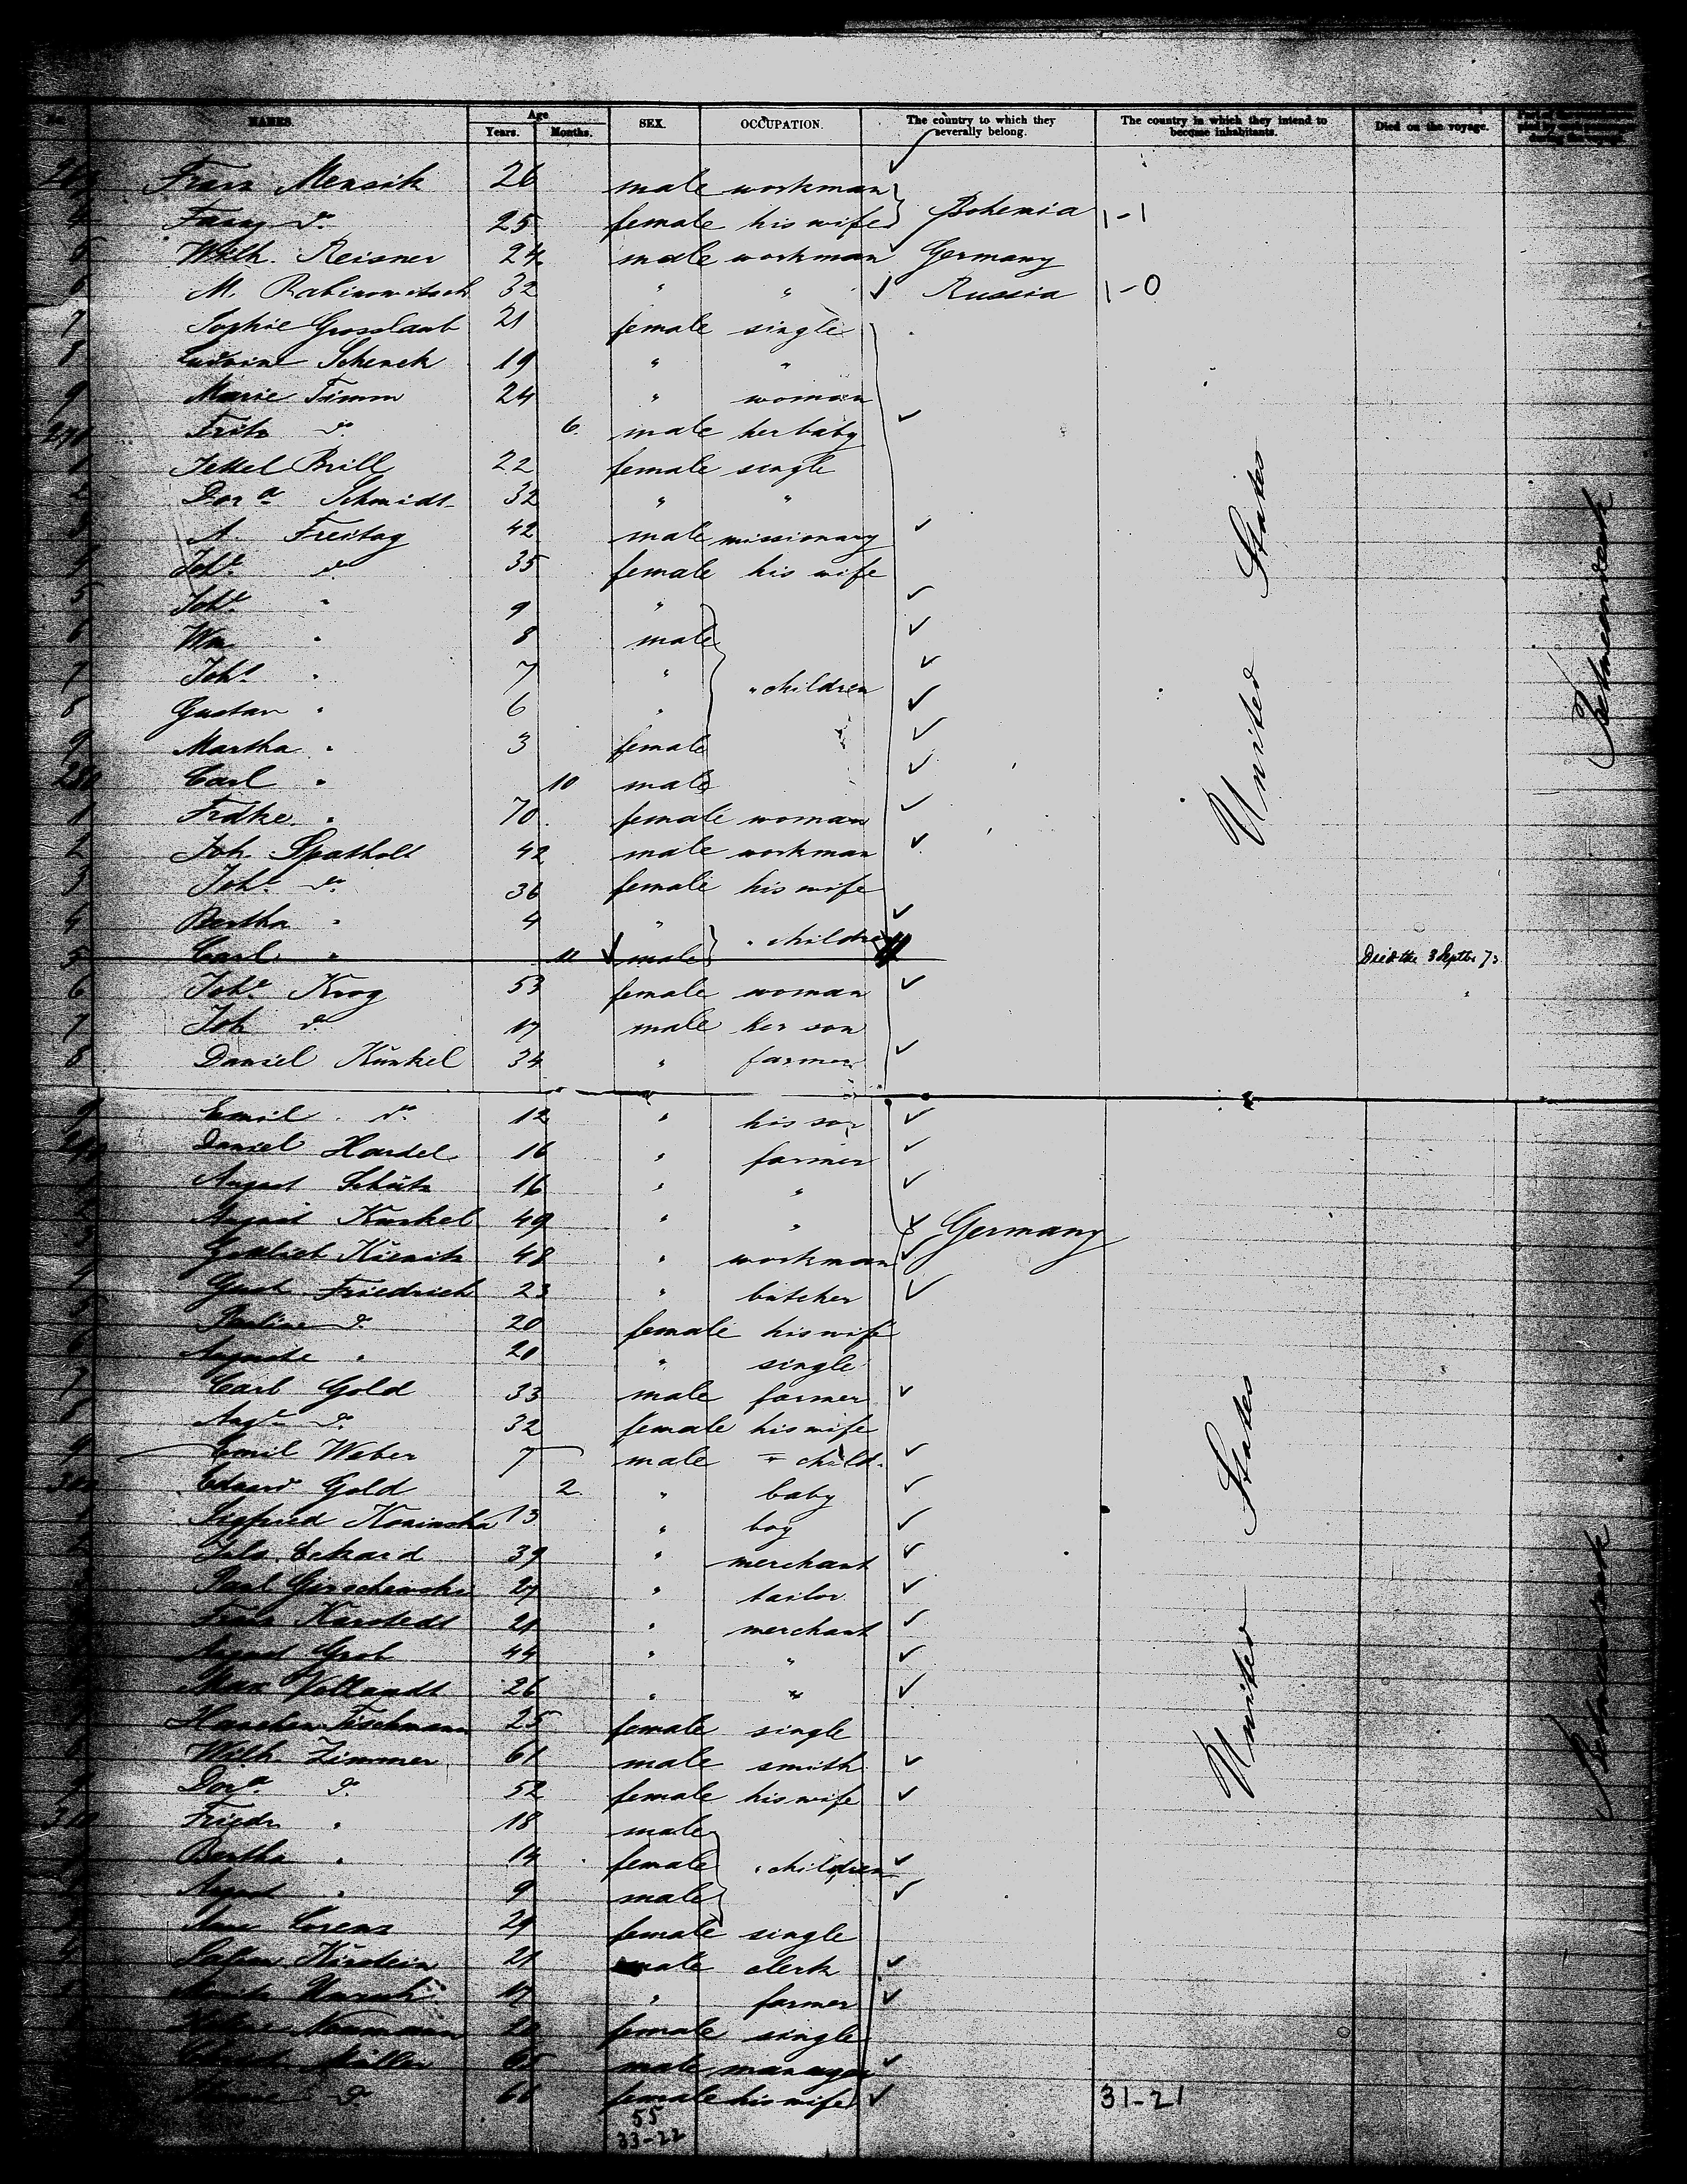 No. NAMES. Age Years. Months. SEX. OCCUPATION. The country to which they severally belong. The country in which they intend to become inhabitants. Died on the voyage.
Franz Mensik 26 male workman
4 Fany do 25 female his wife Bohemia 1-1
5 Wilh. Reisner 24 male workman Germany
6 M. Rabinowitsch 32 " " Russia 1-0
7 Sophie Grosslaub 21 female single
8 Schenck 19 " "
9 Marie Timm 24 " woman
270 Fritz do 6 male her baby
1 Jettel Brill 22 female single
2 Dora Schmidt 32 " "
3 A. Freitag 42 male missionary
4 Johe do 35 female his wife
5 Johe " 9 "
6 Wm " 8 male
7 Johs " 7 " " children
8 Gustav " 6 "
9 Martha " 3 female
280 Carl " 10 male
1 Fridke " 70 female woman
2 Joh. Spatholt 42 male workman
3 Johe do 36 female his wife
4 Bertha " 4 " " children
5 Carl " 11 male Died the 3 Septbr 73
6 Johe Krog 53 female woman
7 Joh do 17 male her son
8 Daniel Kunkel 34 " farmer
9 Emil do 12 " his son
290 Daniel Handel 16 " farmer
1 August Schütz 16 " "
2 August Kunkel 49 " " Germany
3 Gottlieb Kienitz 48 " workman
4 Gust. Friedrich 23 " butcher
5 Pauline do 20 female his wife
6 Auguste " 20 " single
7 Carl Gold 33 male farmer
8 Auge do 32 female his wife
9 Emil Weber 7 male " child
300 Eduard Gold 2 " baby
1 Sigfried Koninska 13 " boy
2 Juls. Eckard 39 " merchant
Paul Gerschewski 27 " tailor
Franz Karstedt 21 " merchant
August Grob 44 " "
Max Vollandt 26 " "
Hanchen Fischmann 25 female single
8 Wilh Zimmer 61 male smith
9 Dora do 52 female his wife
310 Friedr " 18 male
Bertha " 14 female " children
August " 9 male
Lorenz 29 female single
4 Kirstein 21 male clerk
17 " farmer
Naumann 20 female single
Müller 65 male manager
do 66 female his wife 31-21
55
33-22
United States
United States